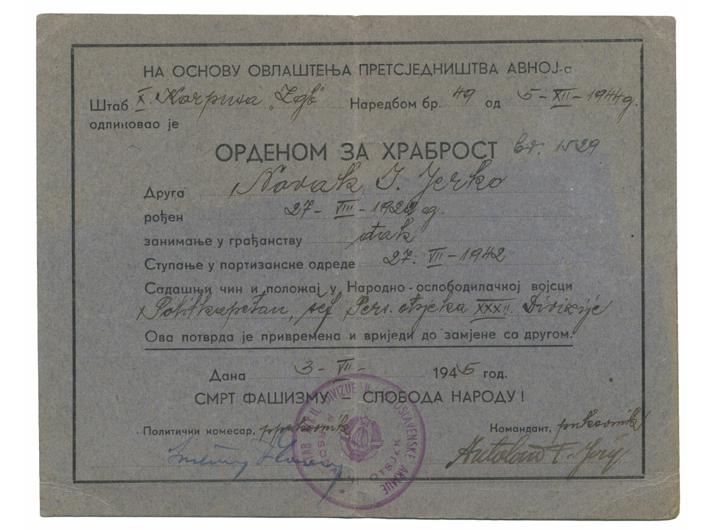 НА ОСНОВУ ОВЛАШТЕЊА ПРЕТСЈЕДНИШТВА АВНОЈ-а
Штаб X. Korpusa „Zgb" Наредбом бр. 49 од 5-XII-1944 g.
одликовао је
ОРДЕНОМ ЗА ХРАБРОСТ br. 1529
Друга Novak I. Jerko
рођен 27-VIII-192 g.
занимање у грађанству đak
Ступање у партизанске одреде 27. VII-1942
Садашњи чин и положај у Народно-ослободилачкој војсци
Politkapetan, šef Pers. otsjeka XXXII. Divizije
Ова потврда је привремена и вриједи до замјене са другом.
Дана 3-VII- 1945 год.
СМРТ ФАШИЗМУ – СЛОБОДА НАРОДУ!
Политички комесар, ppukovnik Командант, pukovnik